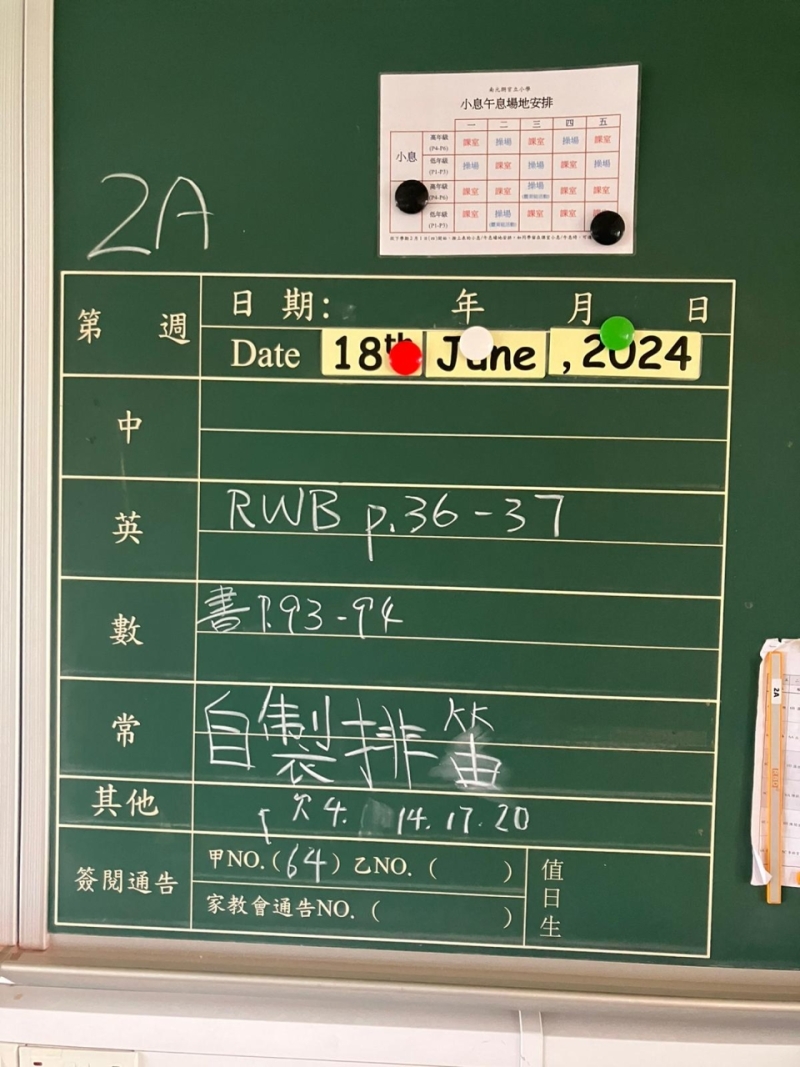 小息午息場地安排
一 二 三 四 五
小息 高年級 (P4-P6) 課室 操場 課室 操場 課室
低年級 (P1-P3) 操場 課室 操場 課室 操場
高年級 (P4-P6) 課室 課室 操場 課室 課室
低年級 (P1-P3) 課室 操場 課室 課室 課室
2A
第 週 日期: 年 月 日
Date 18th June , 2024
中
英 RWB p.36-37
數 書P.93-94
常 自製排笛
其他 欠4. 14. 17. 20
簽閱通告 甲NO.(64) 乙NO.( ) 值日生
家教會通告NO.( )
2A